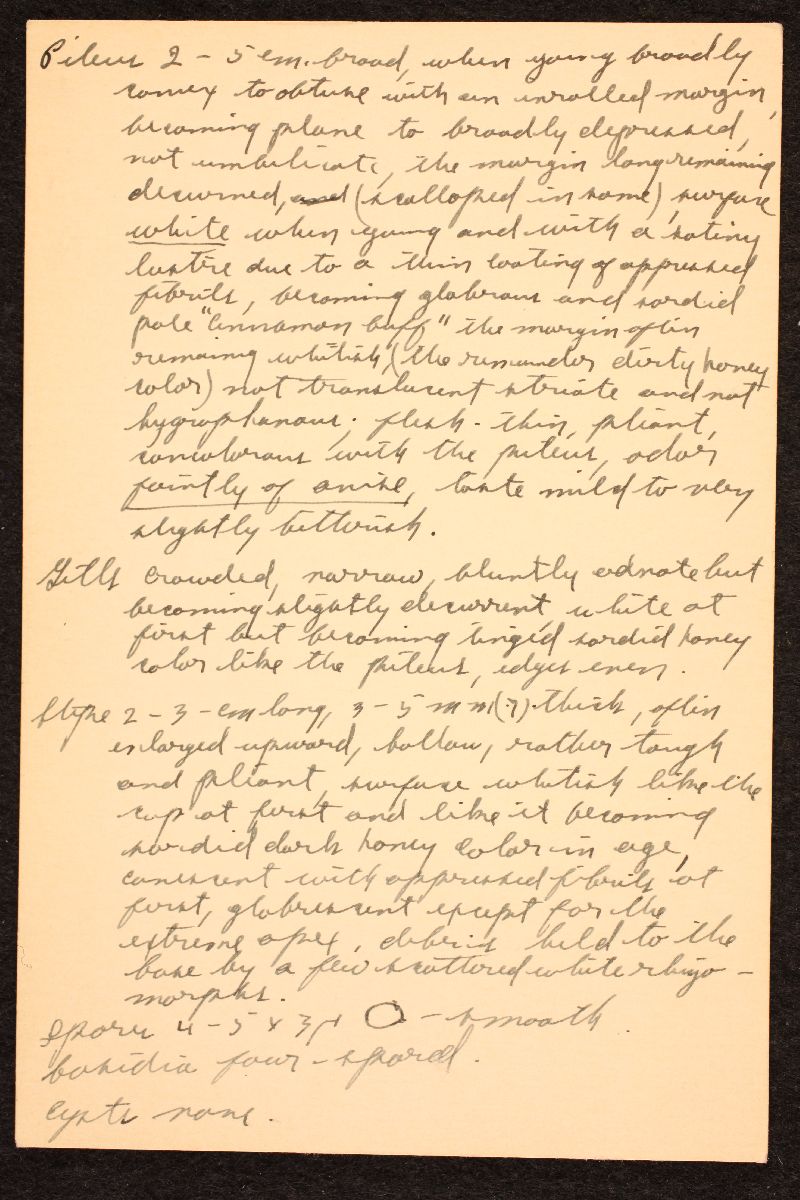 Pileus 2 - 5 cm. broad, when young broadly
convex to obtuse with an inrolled margin,
becoming plane to broadly depressed,
not umbilicate, the margin long remaining
decurved, and (scalloped in some), surface
white when young and with a satiny
lustre due to a thin coating of appressed
fibrils, becoming glabrous and sordid
pale "cinnamon buff" the margin often
remaing whitish, (the remainder dirty honey
color) not translucent striate and not
hygrophanous; flesh - thin, pliant,
concolorous with the pileus, odor
faintly of anise, taste mild to very
slightly bitterish.
Gills crowded, narrow, bluntly adnate but
becoming slightly decurrent, white at
first but becoming tinged sordid honey
color like the pileus, edges even.
Stipe 2 - 3 - cm long, 3 - 5 mm (7) thick, often
enlarged upward, hollow, rather tough
and pliant, surface whitish like the
cap at first and like it becoming
sordid dark honey color in age,
canescent with appressed fibrils at
first, glabrescent except for the
extreme apex, debris held to the
base by a few scattered white rhizo-
morphs.
Spores 4 - 5 x 3µ - smooth.
basidia four-spored.
cysts none.